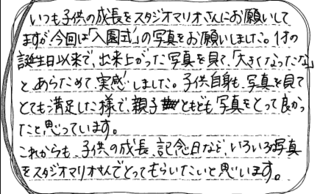 いつも子供の成長をスタジオマリオさんにお願いして
ますが、今回は「入園式」の写真をお願いしました。1才の
誕生日以来で、出来上がった写真を見て、「大きくなったな」
と、あらためて実感しました。子供自身も、写真を見て
とても満足した様で、親子ともども、写真をとって良かっ
たと思っています。
これからも、子供の成長、記念日など、いろいろな写真
をスタジオマリオさんでとってもらいたいと思います。